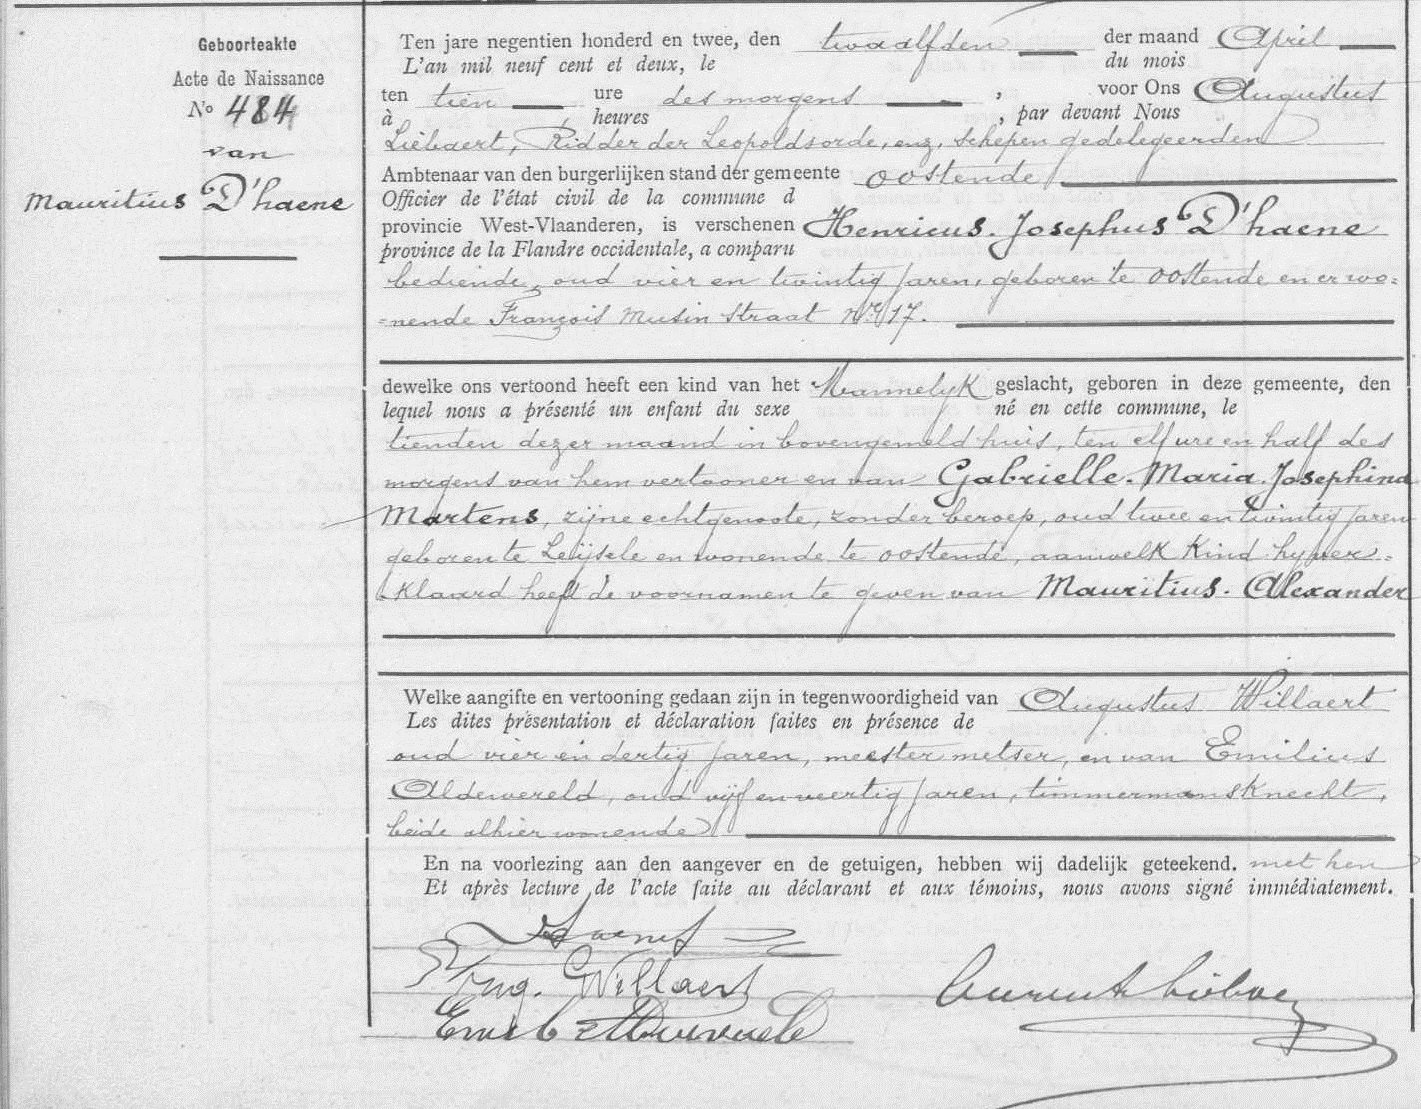 Geboorteakte
Acte de Naissance
No 484
van
Mauritius D'haene
Ten jare negentien honderd en twee, den twaalfden der maand April
L'an mil neuf cent et deux, le du mois
ten tien ure des morgens , voor Ons Augustus
à heures , par devant Nous
Liebaert, Ridder der Leopoldsorde, enz. schepen gedelegeerden
Ambtenaar van den burgerlijken stand der gemeente Oostende
Officier de l'état civil de la commune d
provincie West-Vlaanderen, is verschenen Henricus. Josephus D'haene
province de la Flandre occidentale, a comparu
bediende, oud vier en twintig jaren, geboren te Oostende en er wo=
=nende François Musin straat No 17.
dewelke ons vertoond heeft een kind van het Mannelyk geslacht, geboren in deze gemeente, den
lequel nous a présenté un enfant du sexe né en cette commune, le
tienden dezer maand in bovengemeld huis, ten elf ure en half des
morgens van hem vertooner en van Gabrielle. Maria. Josephina
Martens, zijne echtgenoote, zonder beroep, oud twee en twintig jaren
geboren te Leijsele en wonende te Oostende, aan welk kind hy ver=
=klaard heeft de voornamen te geven van Mauritius. Alexander
Welke aangifte en vertooning gedaan zijn in tegenwoordigheid van Augustus Willaert
Les dites présentation et déclaration faites en présence de
oud vier en dertig jaren, meester metser, en van Emilius
Aldewereld, oud vijf en veertig jaren, timmermansknecht,
beide alhier wonende
En na voorlezing aan den aangever en de getuigen, hebben wij dadelijk geteekend. met hen
Et après lecture de l'acte faite au déclarant et aux témoins, nous avons signé immédiatement.
Aug. Willaert